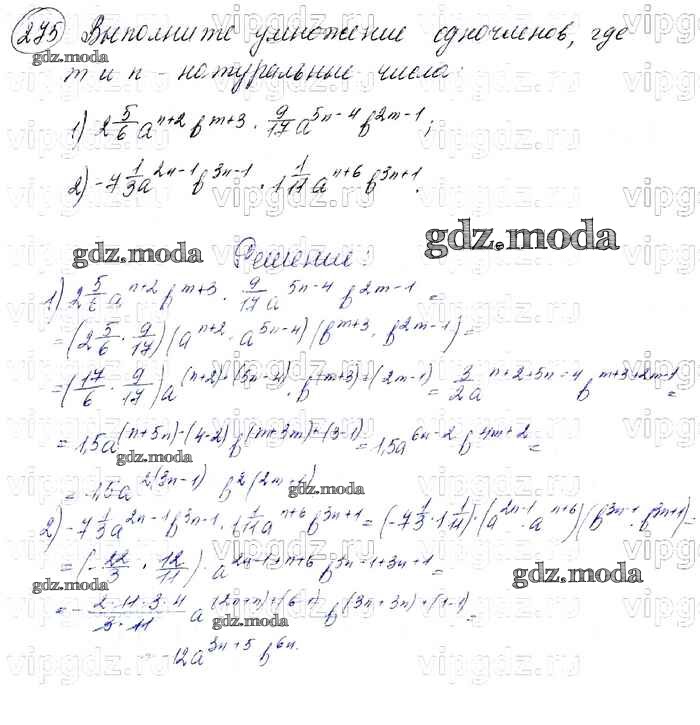 275 Выполните умножение одночленов, где
m и n - натуральные числа:
1) 2 5/6 a^(n+2) b^(m+3) · 9/17 a^(5n-4) b^(2m-1);
2) -7 1/3 a^(2n-1) b^(3n-1) · 1 1/11 a^(n+6) b^(3n+1).
Решение:
1) 2 5/6 a^(n+2) b^(m+3) · 9/17 a^(5n-4) b^(2m-1) =
= (2 5/6 · 9/17)(a^(n+2) · a^(5n-4))(b^(m+3) · b^(2m-1)) =
= (17/6 · 9/17) a^((n+2)+(5n-4)) · b^((m+3)+(2m-1)) = 3/2 a^(n+2+5n-4) b^(m+3+2m-1) =
= 1,5a^((n+5n)-(4-2)) b^((m+3m)+(3-1)) = 1,5a^(6n-2) b^(4m+2) =
= 1,5a^(2(3n-1))
2) -7 1/3 a^(2n-1) b^(3n-1) · 1 1/11 a^(n+6) b^(3n+1) = (-7 1/3 · 1 1/11) · (a^(2n-1) · a^(n+6))(b^(3n-1) · b^(3n+1)) =
= (-22/3 · 12/11) · a^(2n-1+n+6) b^(3n-1+3n+1) =
= - (2·11·3·4)/(3·11) a^((2n+n)+(6-1)) b^((3n+3n)+(1-1)) =
= -12a^(3n+5) b^(6n).
gdz.moda
gdz.moda
gdz.moda
gdz.moda
gdz.moda
gdz.moda
gdz.moda
gdz.moda
gdz.moda
vipgdz.ru